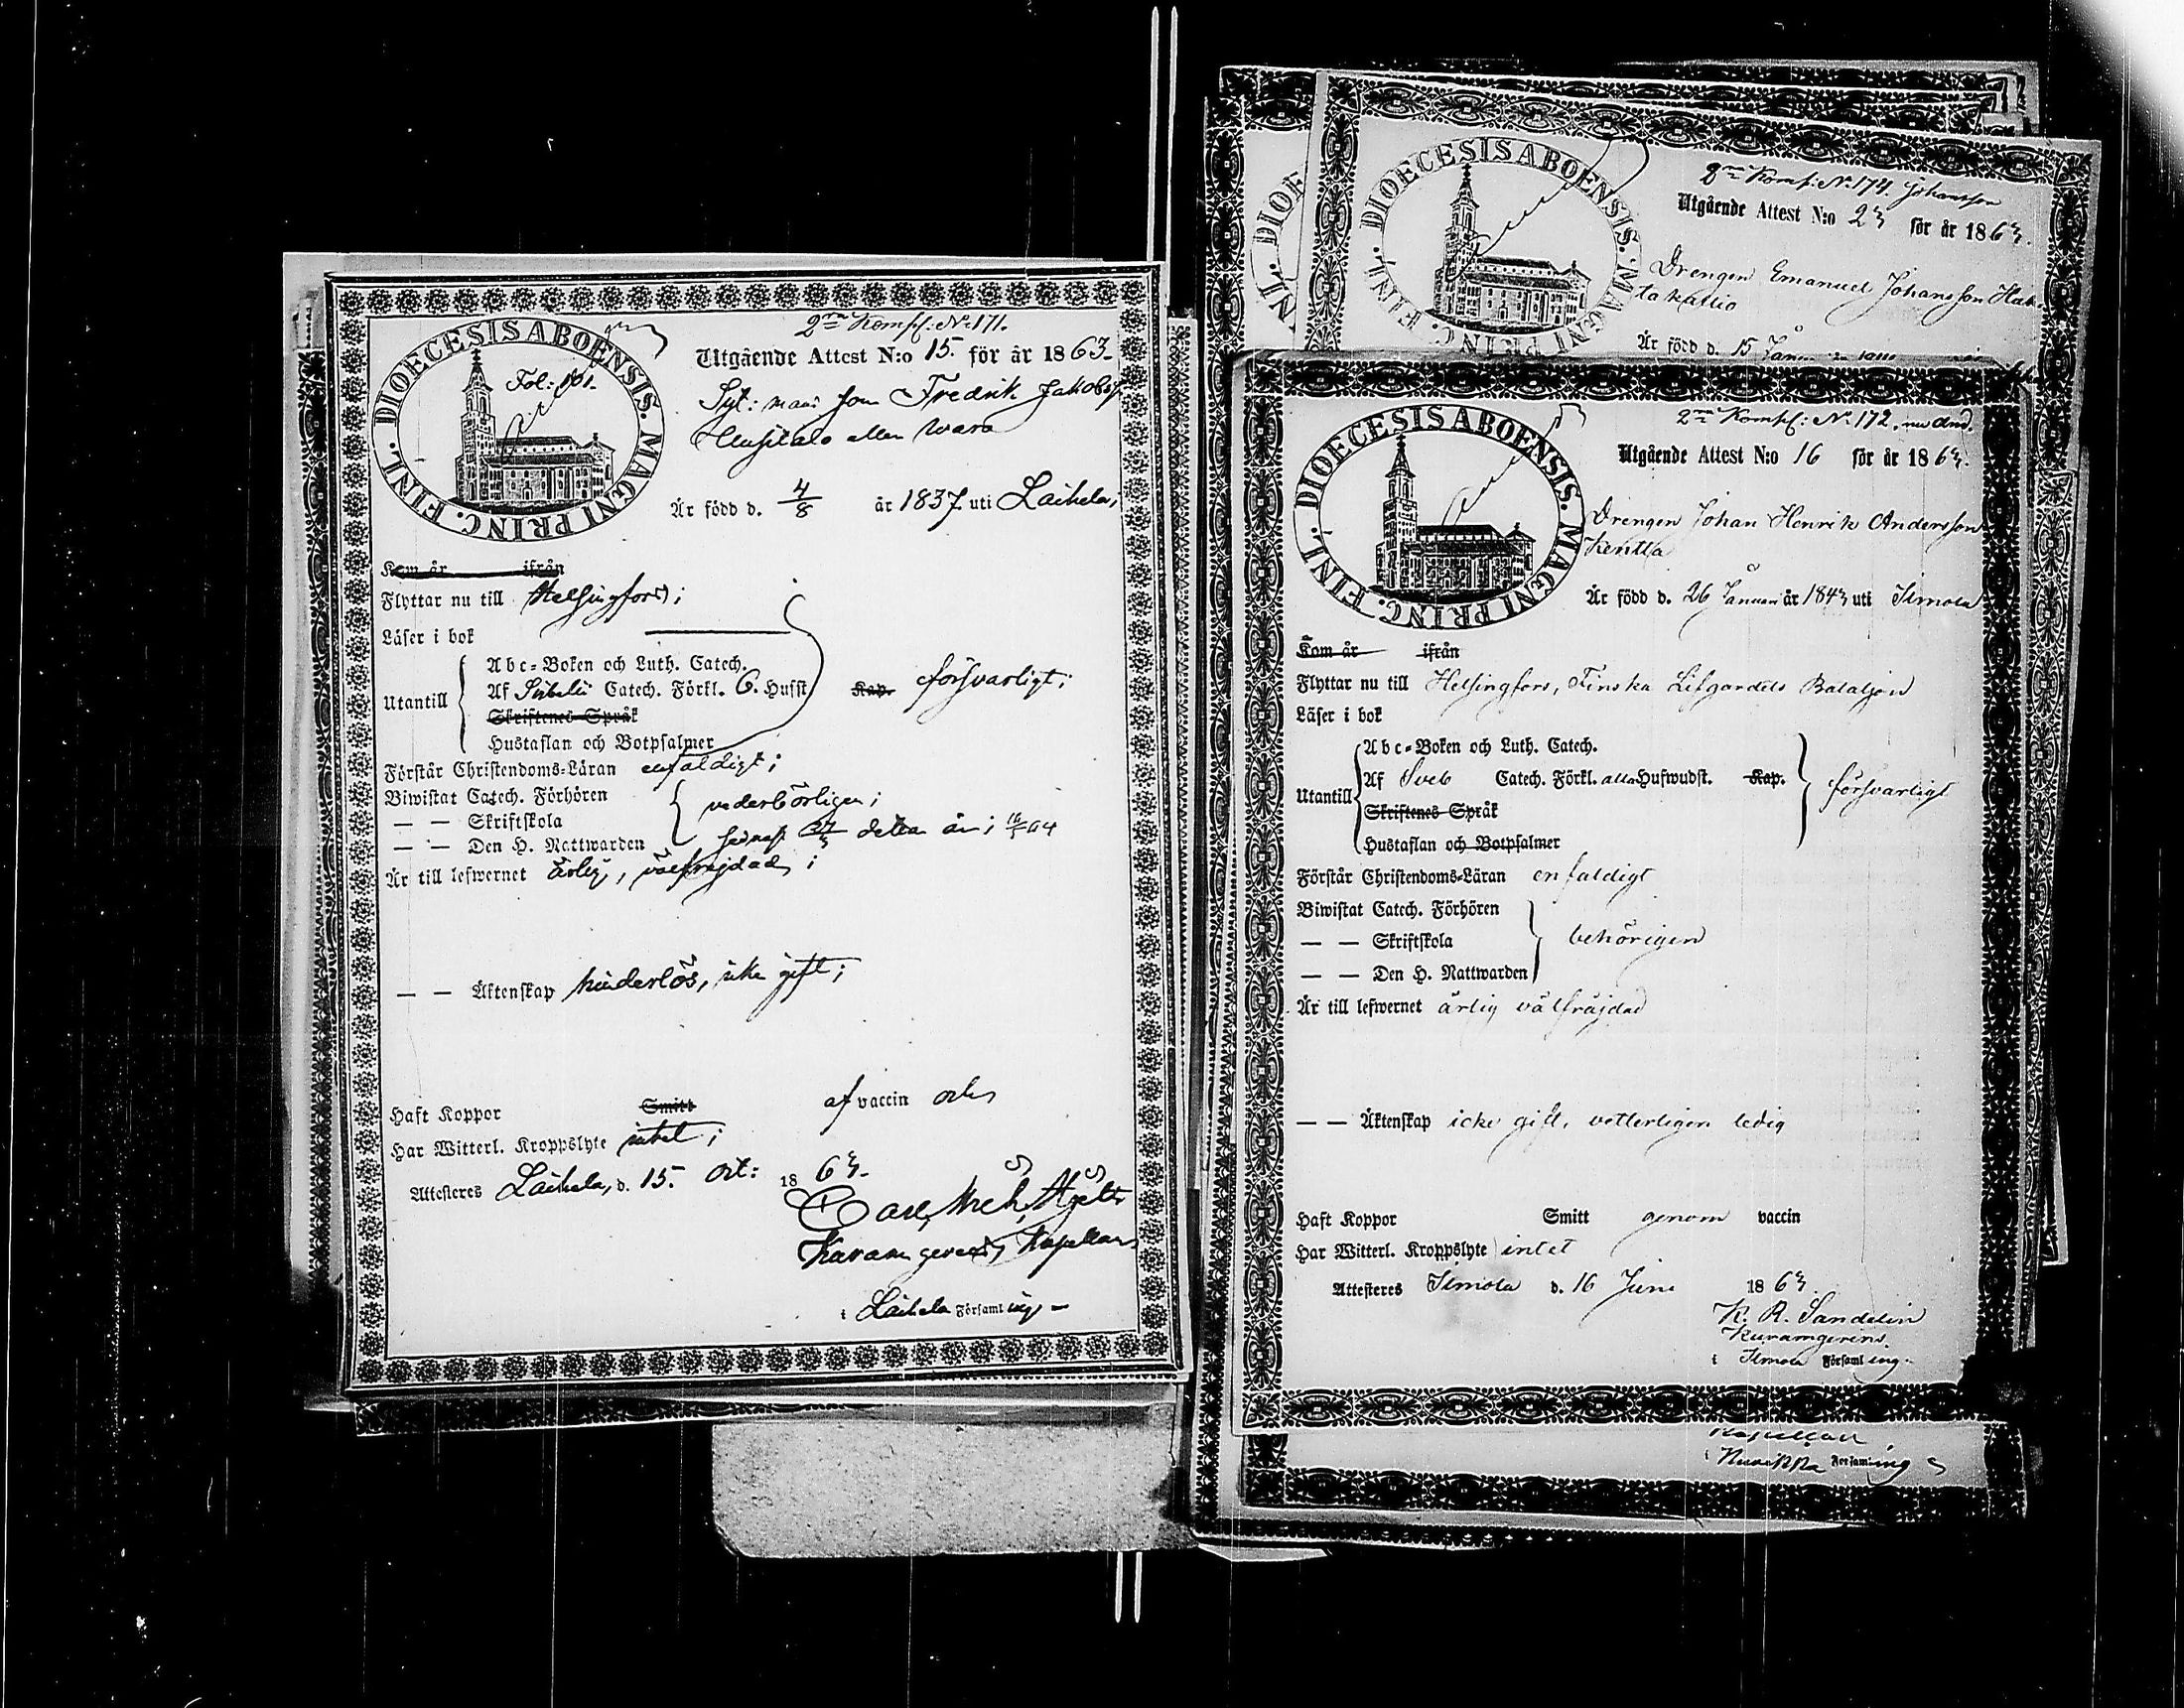 2ra Komp: No 171.
DIOECESIS ABOENSIS. MAGNI PRINC. FINL.
Fol: 101.
Utgående Attest N:o 15. för år 1863.
Fredrik Jakobss
eller Wara
Är född d. 4/8 år 1837 uti Laihela;
Kom år ifrån
Flyttar nu till Helsingfors;
Läser i bok
Utantill
Abc-Boken och Luth. Catech.
Af Catech. Förkl. 6. Hufst. Kap. försvarligt;
Skriftenes Språk
Hustaflan och Botpsalmer
Förstår Christendoms-Läran enfaldigt;
Biwistat Catech. Förhören vederbörligen;
— — Skriftskola
— — Den H. Nattwarden detta år;
Är till lefwernet ärlig, välfrejdad;
— — Äktenskap hinderlös, icke gift;
Haft Koppor Smitt af vaccin
Har Witterl. Kroppslyte intet;
Attesteres Laihela, d. 15. Oct: 1863.
Kapellan
i Laihela Församling
DIOECESIS ABOENSIS. MAGNI PRINC. FINL.
2ra Komp: No 174. Johansson
Utgående Attest N:o 23 för år 1863.
Drengen Emanuel Johansson Hau-
takallio
Är född d. 15
2ra Komp: No 172, And.
DIOECESIS ABOENSIS. MAGNI PRINC. FINL.
Utgående Attest N:o 16 för år 1863.
Drengen Johan Henrik Andersson
Kenttä
Är född d. 26 Januari år 1843 uti Ilmola
Kom år ifrån
Flyttar nu till Helsingfors, Finska Lifgardets Bataljon
Läser i bok
Utantill
Abc-Boken och Luth. Catech.
Af Sveb Catech. Förkl. alla Hufwudst. Kap. försvarligt
Skriftenes Språk
Hustaflan och Botpsalmer
Förstår Christendoms-Läran enfaldigt
Biwistat Catech. Förhören
— — Skriftskola behörigen
— — Den H. Nattwarden
Är till lefwernet ärlig välfräjdad
— — Äktenskap icke gift, vetterligen ledig
Haft Koppor Smitt genom vaccin
Har Witterl. Kroppslyte intet
Attesteres Ilmola d. 16 Juni 1863.
K. R. Sandelin
Kuramgerens.
i Ilmola Församling.
Kapellan
i Församling